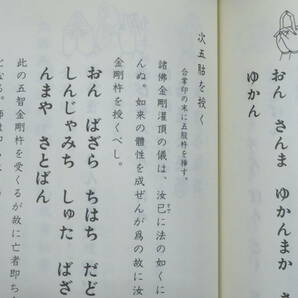 おん さんま ゆかんまか さ
ゆかん
次五鈷を授く
合掌印の末に五股杵を挿す。
諸佛金剛灌頂の儀は、汝已に法の如くに
んぬ。如来の體性を成ぜんが爲の故に汝
金剛杵を授くべし。
おん ばざら ちはち だど
しんじゃみち しゅた ばざ
んまや さとばん
此の五智金剛杵を受くるが故に亡者即ち